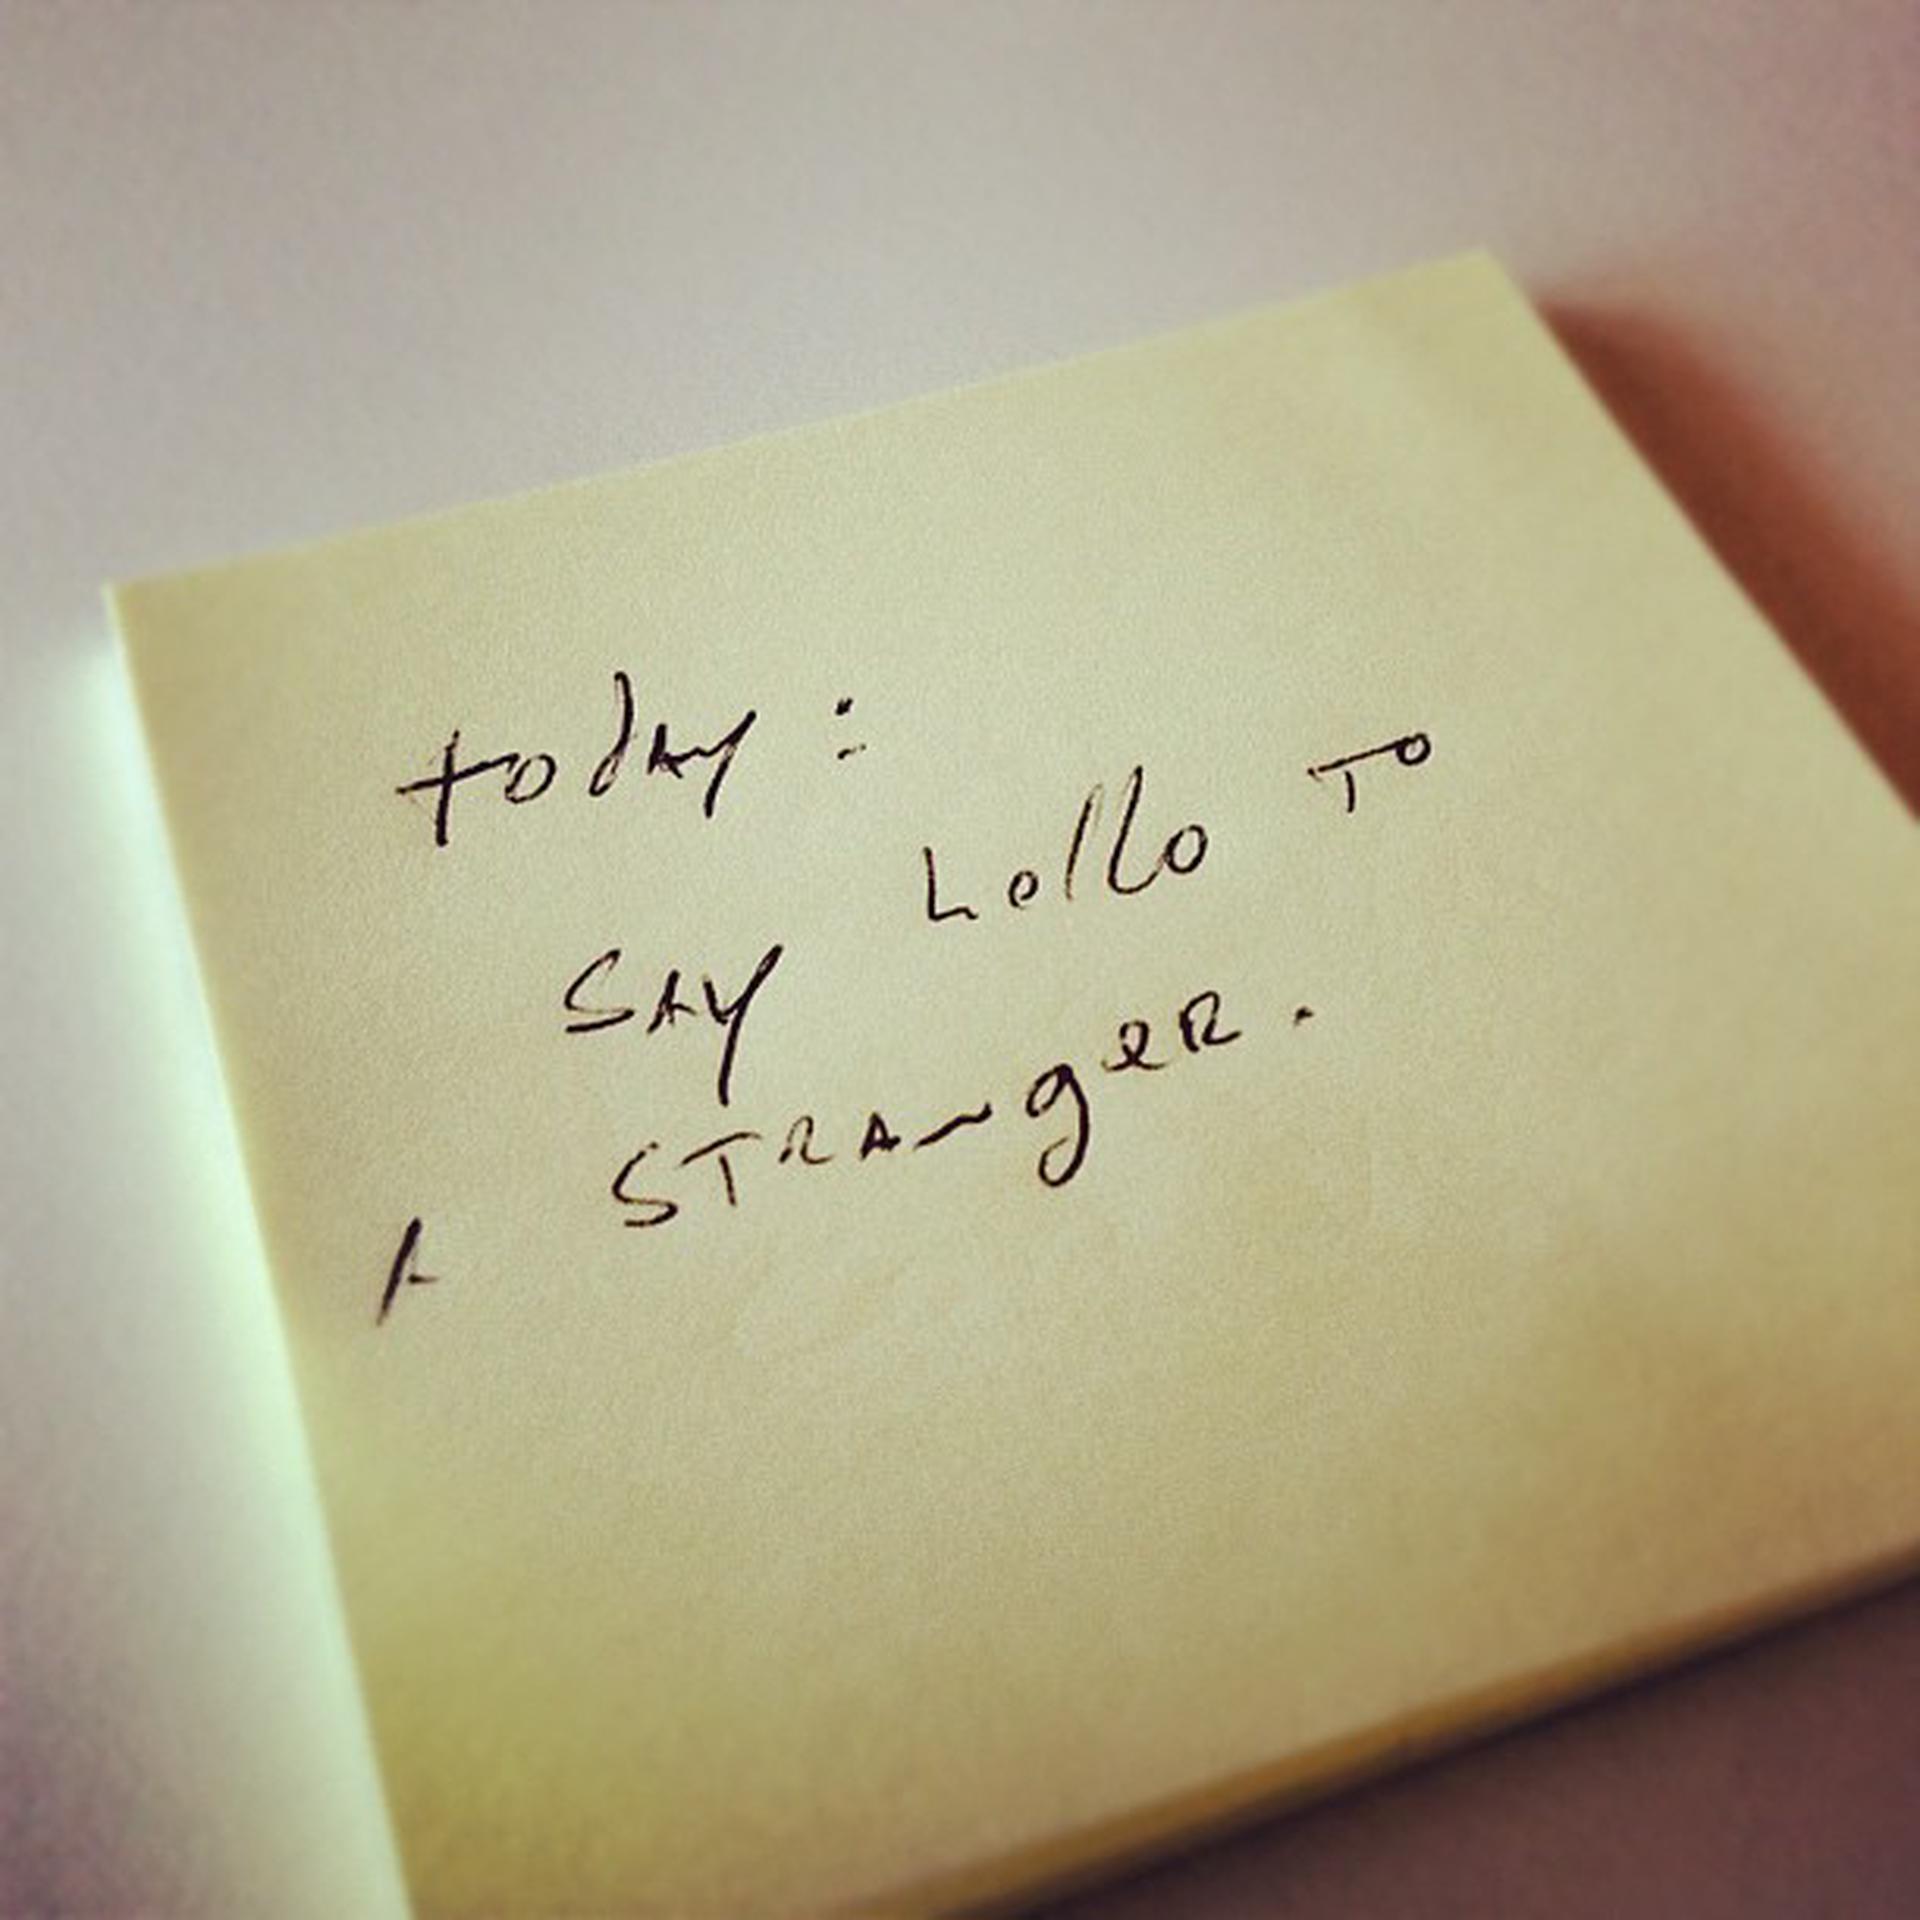 today:
SAY hello TO
A STRANgeR.